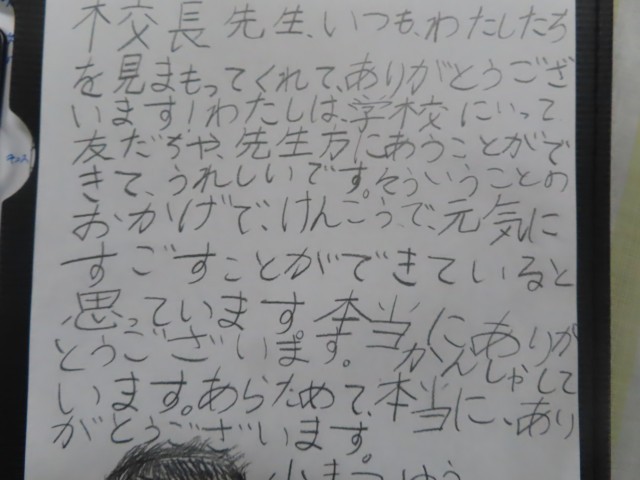 校長先生、いつも、わたしたち
を見まもってくれて、ありがとうござ
います!わたしは、学校にいって
友だちや、先生方にあうことがで
きて、うれしいです。そういうことの
おかげで、けんこうで、元気に
すごすことができていると
思っています。本当に、ありが
とうございます。かんしゃして
います。あらためて、本当に、あり
がとうございます。